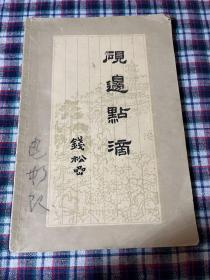 硯邊點滴
錢松喦